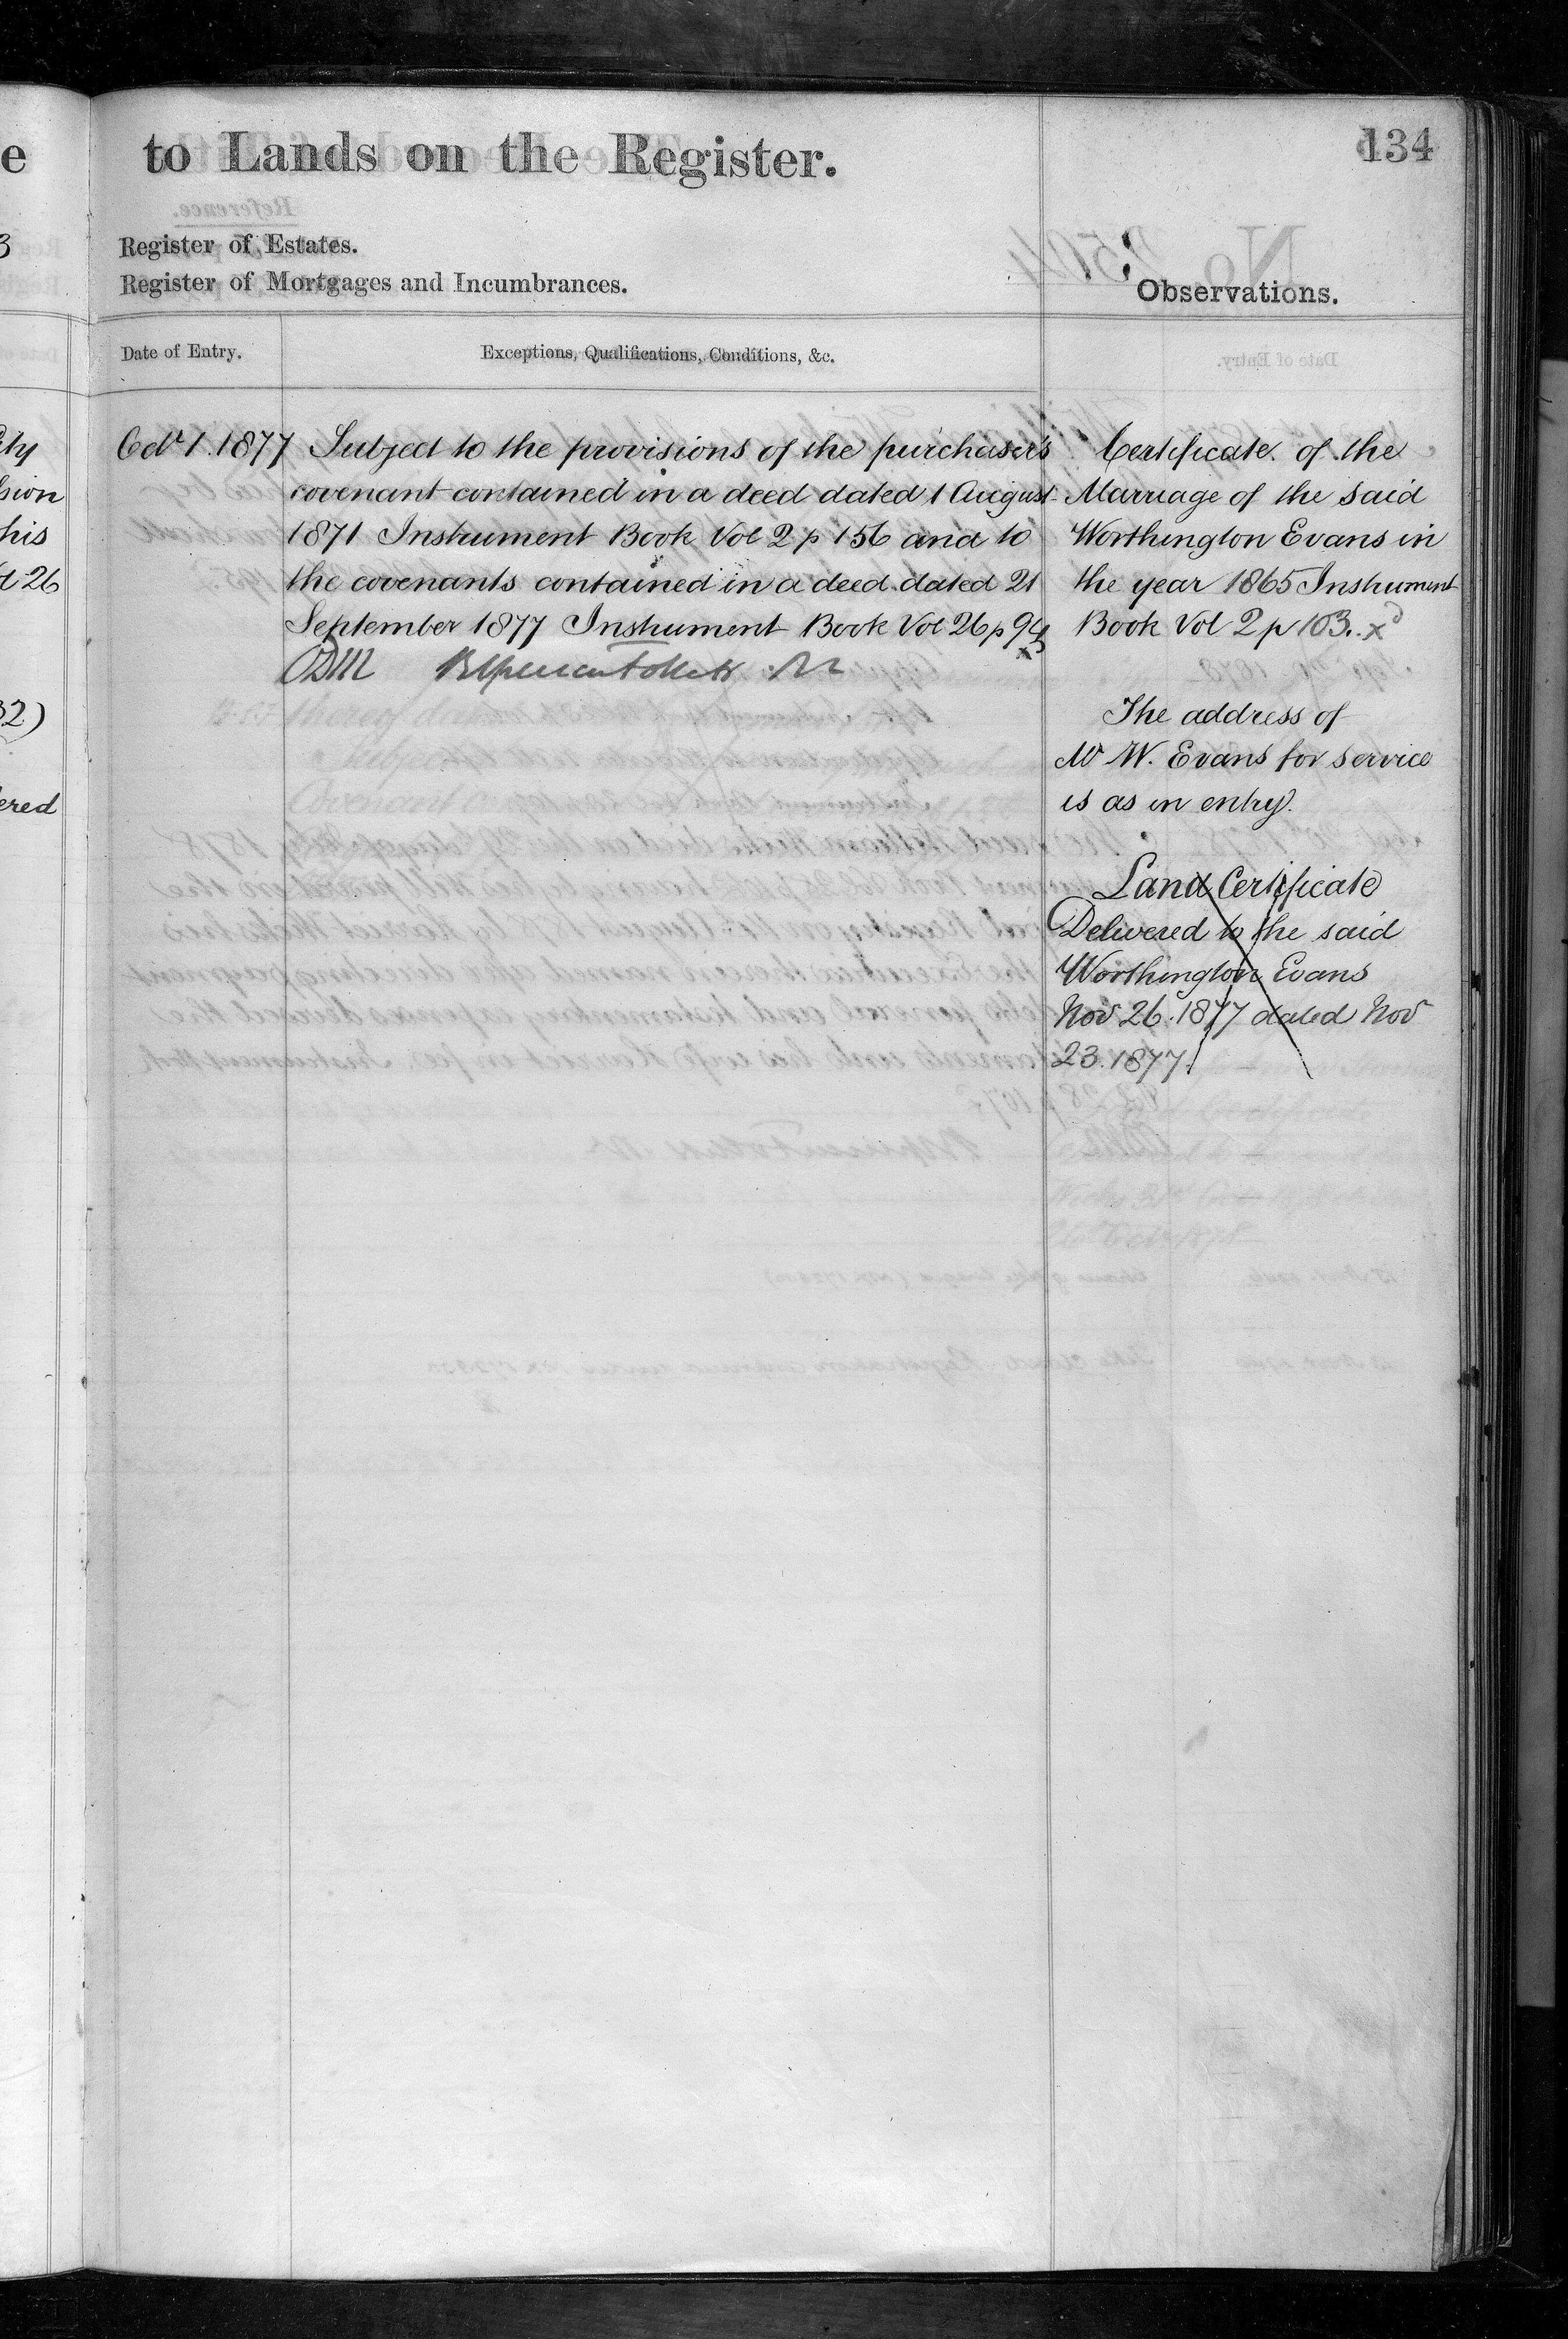 134
to Lands on the Register.
Register of Estates.
Register of Mortgages and Incumbrances.
Observations.
Date of Entry.
Exceptions, Qualifications, Conditions, &c.
Octr 1. 1877
Subject to the provisions of the purchaser's
covenant contained in a deed dated 1 August
1871 Instrument Book Vol 2 p 156 and to
the covenants contained in a deed dated 21
September 1877 Instrument Book Vol 26 p 94
Certificate of the
Marriage of the said
Worthington Evans in
the year 1865 Instrument
Book Vol 2 p 103. x
The address of
Mr W. Evans for service
is as in entry.
Land Certificate
Delivered to the said
Worthington Evans
Nov 26. 1877 dated Nov
23. 1877.
e
3
ity
sion
his
26
32)
ered